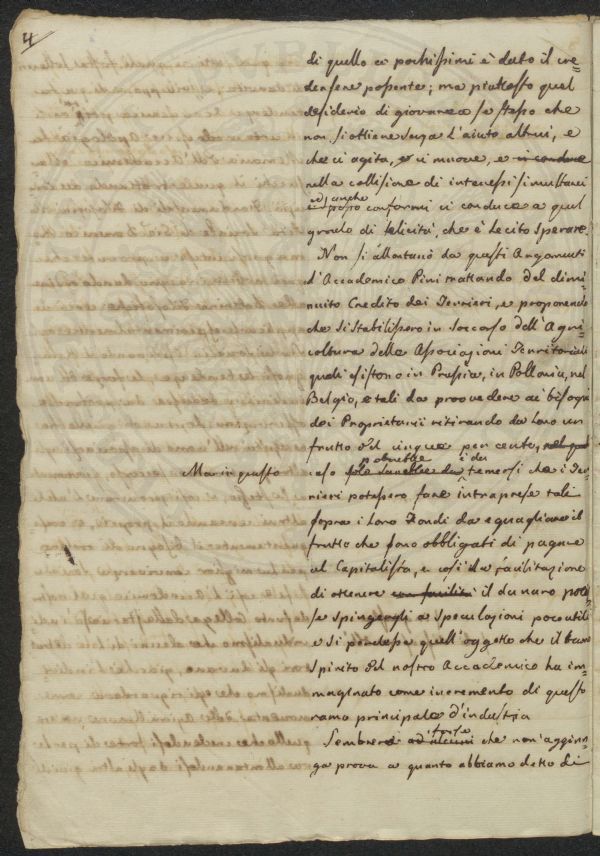 4
di quello a pochissimi è dato il cre=
dersene possente; ma piuttosto quel
desiderio di giovare a se stesso che
non si ottiene senza l'aiuto altrui, e
che ci agita, e ci muove, e in conduce
nella collisione di interessi simultanei
ed anche
e spesso conformi ci conduce a quel
grado di felicità, che è lecito sperare.
Non si allontanò da questi Argomenti
l'Accademico Pini trattando del dimi=
nuito Credito dei Terrieri, e proponendo
che si stabilissero in Soccorso dell'Agri=
coltura delle Associazioni Territoriali
quali esistono in Prussia, in Pollonia, nel
Belgio, e tali da provvedere ai bisogni
dei Proprietarii ritirando da loro un
frutto del cinque per cento, nel qual
Ma in questo caso potrebbe da temersi che i Ter
rieri potessero fare intraprese tali
sopra i loro Fondi da eguagliare il
frutto che sono obbligati di pagare
al Capitalista, e così la facilitazione
di ottenere il danaro potes
se spingergli a Speculazioni poco utili
e si perdesse quell'oggetto che il buono
Spirito del nostro Accademico ha im=
maginato come incremento di questo
ramo principale d'industria
forse
Sembrerà ad alcuni che non aggiun=
ga prova a quanto abbiamo detto di